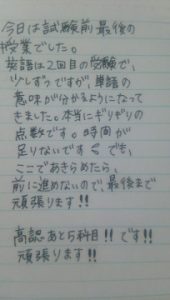 今日は試験前最後の
授業でした。
英語は2回目の受験で、
少しずつですが、単語の
意味が分かるようになって
きました。本当にギリギリの
点数です。時間が
足りないです でも、
ここであきらめたら、
前に進めないので最後まで
頑張ります!!
高認あと5科目!!です!!
頑張ります!!